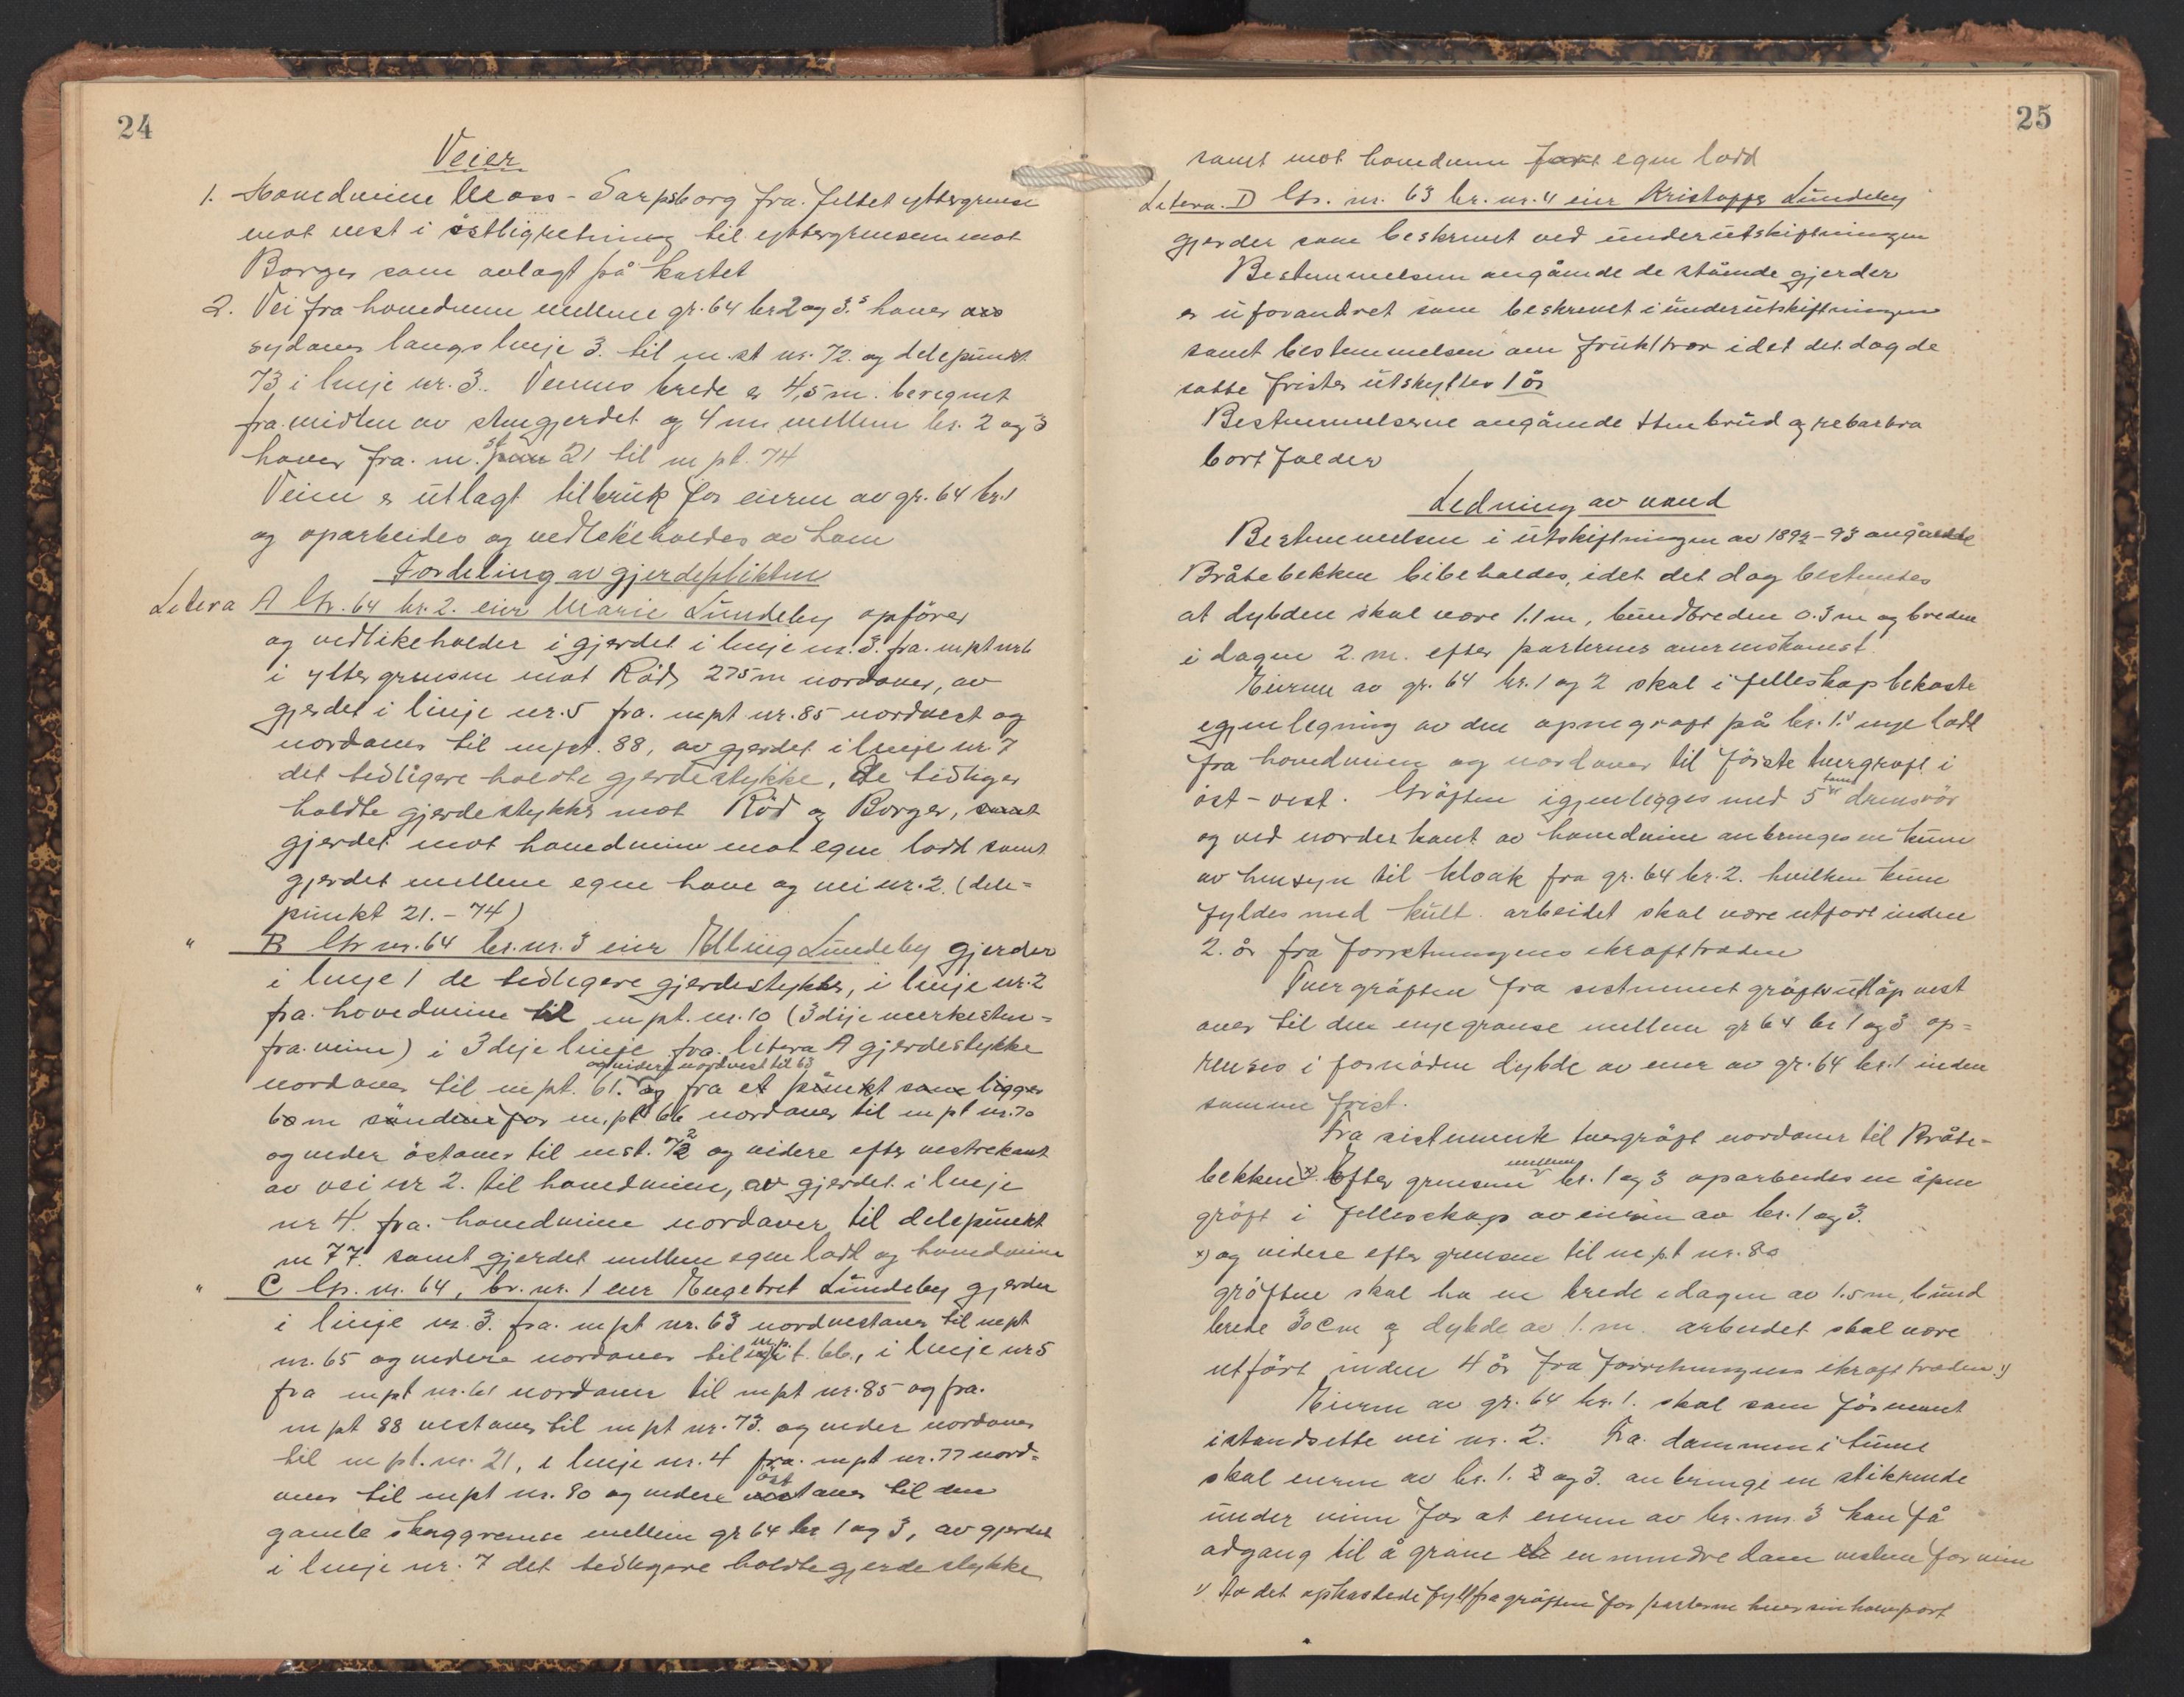 24
Veier
1. Hovedveien Moss - Sarpsborg fra feltet yttergrense
mot vest i östligretning til yttergrensen mot
Borger som avlagt på kartet
2. Vei fra hovedveien mellem gr. 64 br 2 og 3.s haver
sydover langs linje 3. til m.st nr. 72 og delepunkt
73 i linje nr. 3. Veiens brede er 4,5 m. beregnet
fra midten av stengjerdet og 4 m mellem br. 2 og 3
haver fra. m. st 21 til m pt. 74
Veien er utlagt til bruk for eieren av gr. 64 br. 1
og oparbeides og vedlikeholdes av ham
Fordeling av gjerdeplikten
Litera A Gr. 64 br. 2. eier Marie Lundeby opförer
og vedlikeholder i gjerdet i linje nr. 3. fra. mpt nr 6
i yttergrensen mot Röd, 275 m nordover, av
gjerdet i linje nr. 5 fra. mpt nr. 85 nordvest og
nordover til mpt. 88, av gjerdet i linje nr. 7
det tidligere holdte gjerdestykke, de tidliger
holdte gjerdestykker mot Röd og Borger, samt
gjerdet mot hovedveien mot egen lodd samt
gjerdet mellem egen have og vei nr. 2. (dele=
punkt 21. - 74)
" B Gr nr. 64 br. nr. 3 eier Elling Lundeby gjerder
i linje 1 de tidligere gjerdestykker, i linje nr. 2
fra. hovedveien til m pt. nr. 10 (3dije merkesten=
fra. veien) i 3dije linje fra. litera A gjerdestykke
og videre nordvest til 63
nordover til mpt. 61. og fra et punkt som ligger
60 m söndenfor m. pt 66 nordover til m pt nr. 70
og vider östover til mst. 72 og videre efter vestrekant
av vei nr 2. til hovedveien, av gjerdet i linje
nr 4. fra. hovedveien nordover til delepunkt
nr 77. samt gjerdet mellem egen lodd og hovedveien
" C Gr. nr. 64, br. nr. 1 eier Engebret Lundeby gjerder
i linje nr. 3. fra. mpt nr. 63 nordvestover til mpt
nr. 65 og videre nordover til mp t. 66., i linje nr 5
fra mpt nr. 61 nordover til mpt nr. 85 og fra.
m pt 88 vestover til m pt nr. 73. og vider nordover
til m pt. nr. 21, i linje nr. 4 fra. mpt nr. 77 nord=
öst
over til mpt nr. 80 og videre vestover til den
gamle skoggrense mellem gr 64 br 1 og 3, av gjerdet
i linje nr. 7 det tidligere holdte gjerdestykke
25
samt mot hovedveien fort egen lodd
Litera. D Gr. nr. 63 br. nr. 4 eier Kristoffer Lundeby
gjerder som beskrevet ved underutskiftningen
Bestemmelsen angående de stående gjerder
er uforandret som beskrevet i underutskiftningen
samt bestemmelsen om frukttrær idet det dog de
satte frister utskyttes 1 år
Bestemmelserne angående stenbrud og rebarbra
bortfalder
Ledning av vand
Bestemmelsen i utskiftningen av 1892-93 angående
Bråtebekken bibeholdes, idet det dog bestemtes
at dybden skal være 1.1 m, bundbreden 0.3 m og breden
i dagen 2. m. efter parternes overenskomst.
Eieren av gr. 64 br. 1 og 2 skal i felleskap bekoste
egjenlegning av den opnegröft på br. 1.s nye lodd
fra hovedveien og nordover til förste tvergröft i
öst - vest. Gröften igjenlegges med 5 toms drensrör
og ved norderkant av hovedveien anbringes en kum
av hensyn til kloak fra gr. 64 br. 2. hvilken kum
fyldes med kult. arbeidet skal være utfort inden
2. år fra forretningens ikrafttræden
Tvergröften fra sistnevnt gröftsutlöp vest
over til den nyegrænse mellem gr 64 br 1 og 3 op=
renses i fornöden dybde av eier av gr. 64 br. 1 inden
samme frist.
Fra sistnevnte tvergröft nordover til Bråte=
mellem
bekken x) Efter grensen br. 1 og 3 oparbeides en åpen
gröft i felleskap av eieren av br. 1 og 3.
x) og videre efter grensen til m pt nr. 80
gröften skal ha en brede i dagen av 1.5 m, bund
brede 30 cm og dybde av 1. m. arbeidet skal være
utfört inden 4 år fra forretningens ikrafttræden 1)
Eieren av gr. 64 br. 1. skal som förnevnt
istandsette vei nr. 2. Fra. dammen i tunet
skal eieren av br. 1. 2 og 3. anbringe en stikrende
under veien for at eieren av br. nr. 3 kan få
adgang til å grave en mindre dam vesten for veien
1) Av det opkastede fyll fra gröften får parterne hver sin halvpart